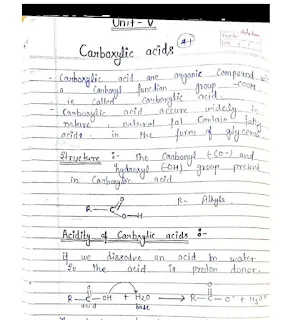 Unit - V
Carboxylic acids
- Carboxylic acid are organic Compound
a Carboxyl function group -COOH
is called Carboxylic acid.
Carboxylic acid accure widely in
nature, natural fat Contain fatty
acids. in the form of glycerol
Structure :- the Carbonyl (-CO-) and
hydroxyl (-OH) group present
in Carboxylic acid
O
R-C R- Alkyle
O-H
Acidity of Carboxylic acids :-
if we dissolve an acid in water
So the acid is proton donor.
O O
R-C-OH + H2O → R-C-O- + H3O+
acid base